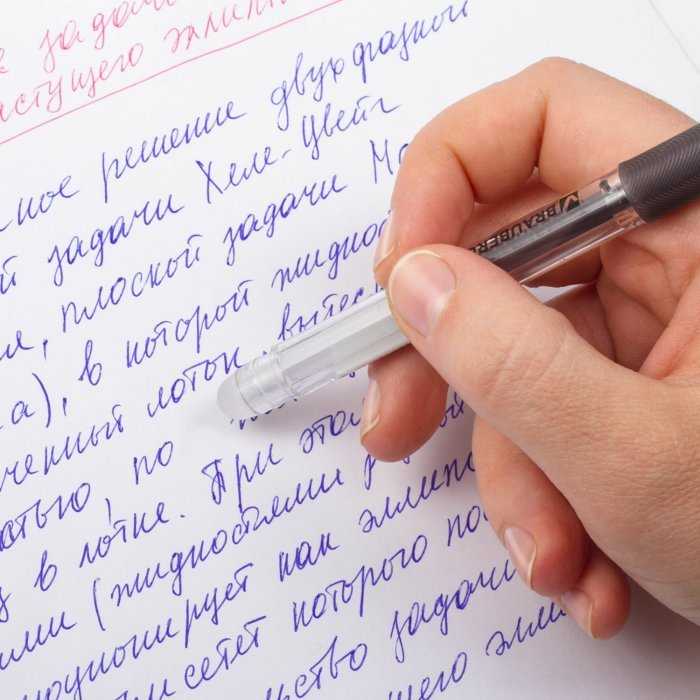 задачи
астущего эллип
ное решение двухфазной
й задачи Хеле-Шоу
, плоской задачи
), в которой жидкос
ченный лоток, вытес
стью, по
в лотке. При этом
ми (жидкостями
оционирует как эллипс
сетет которого
ство задачи
щего элли
BRAUBERG